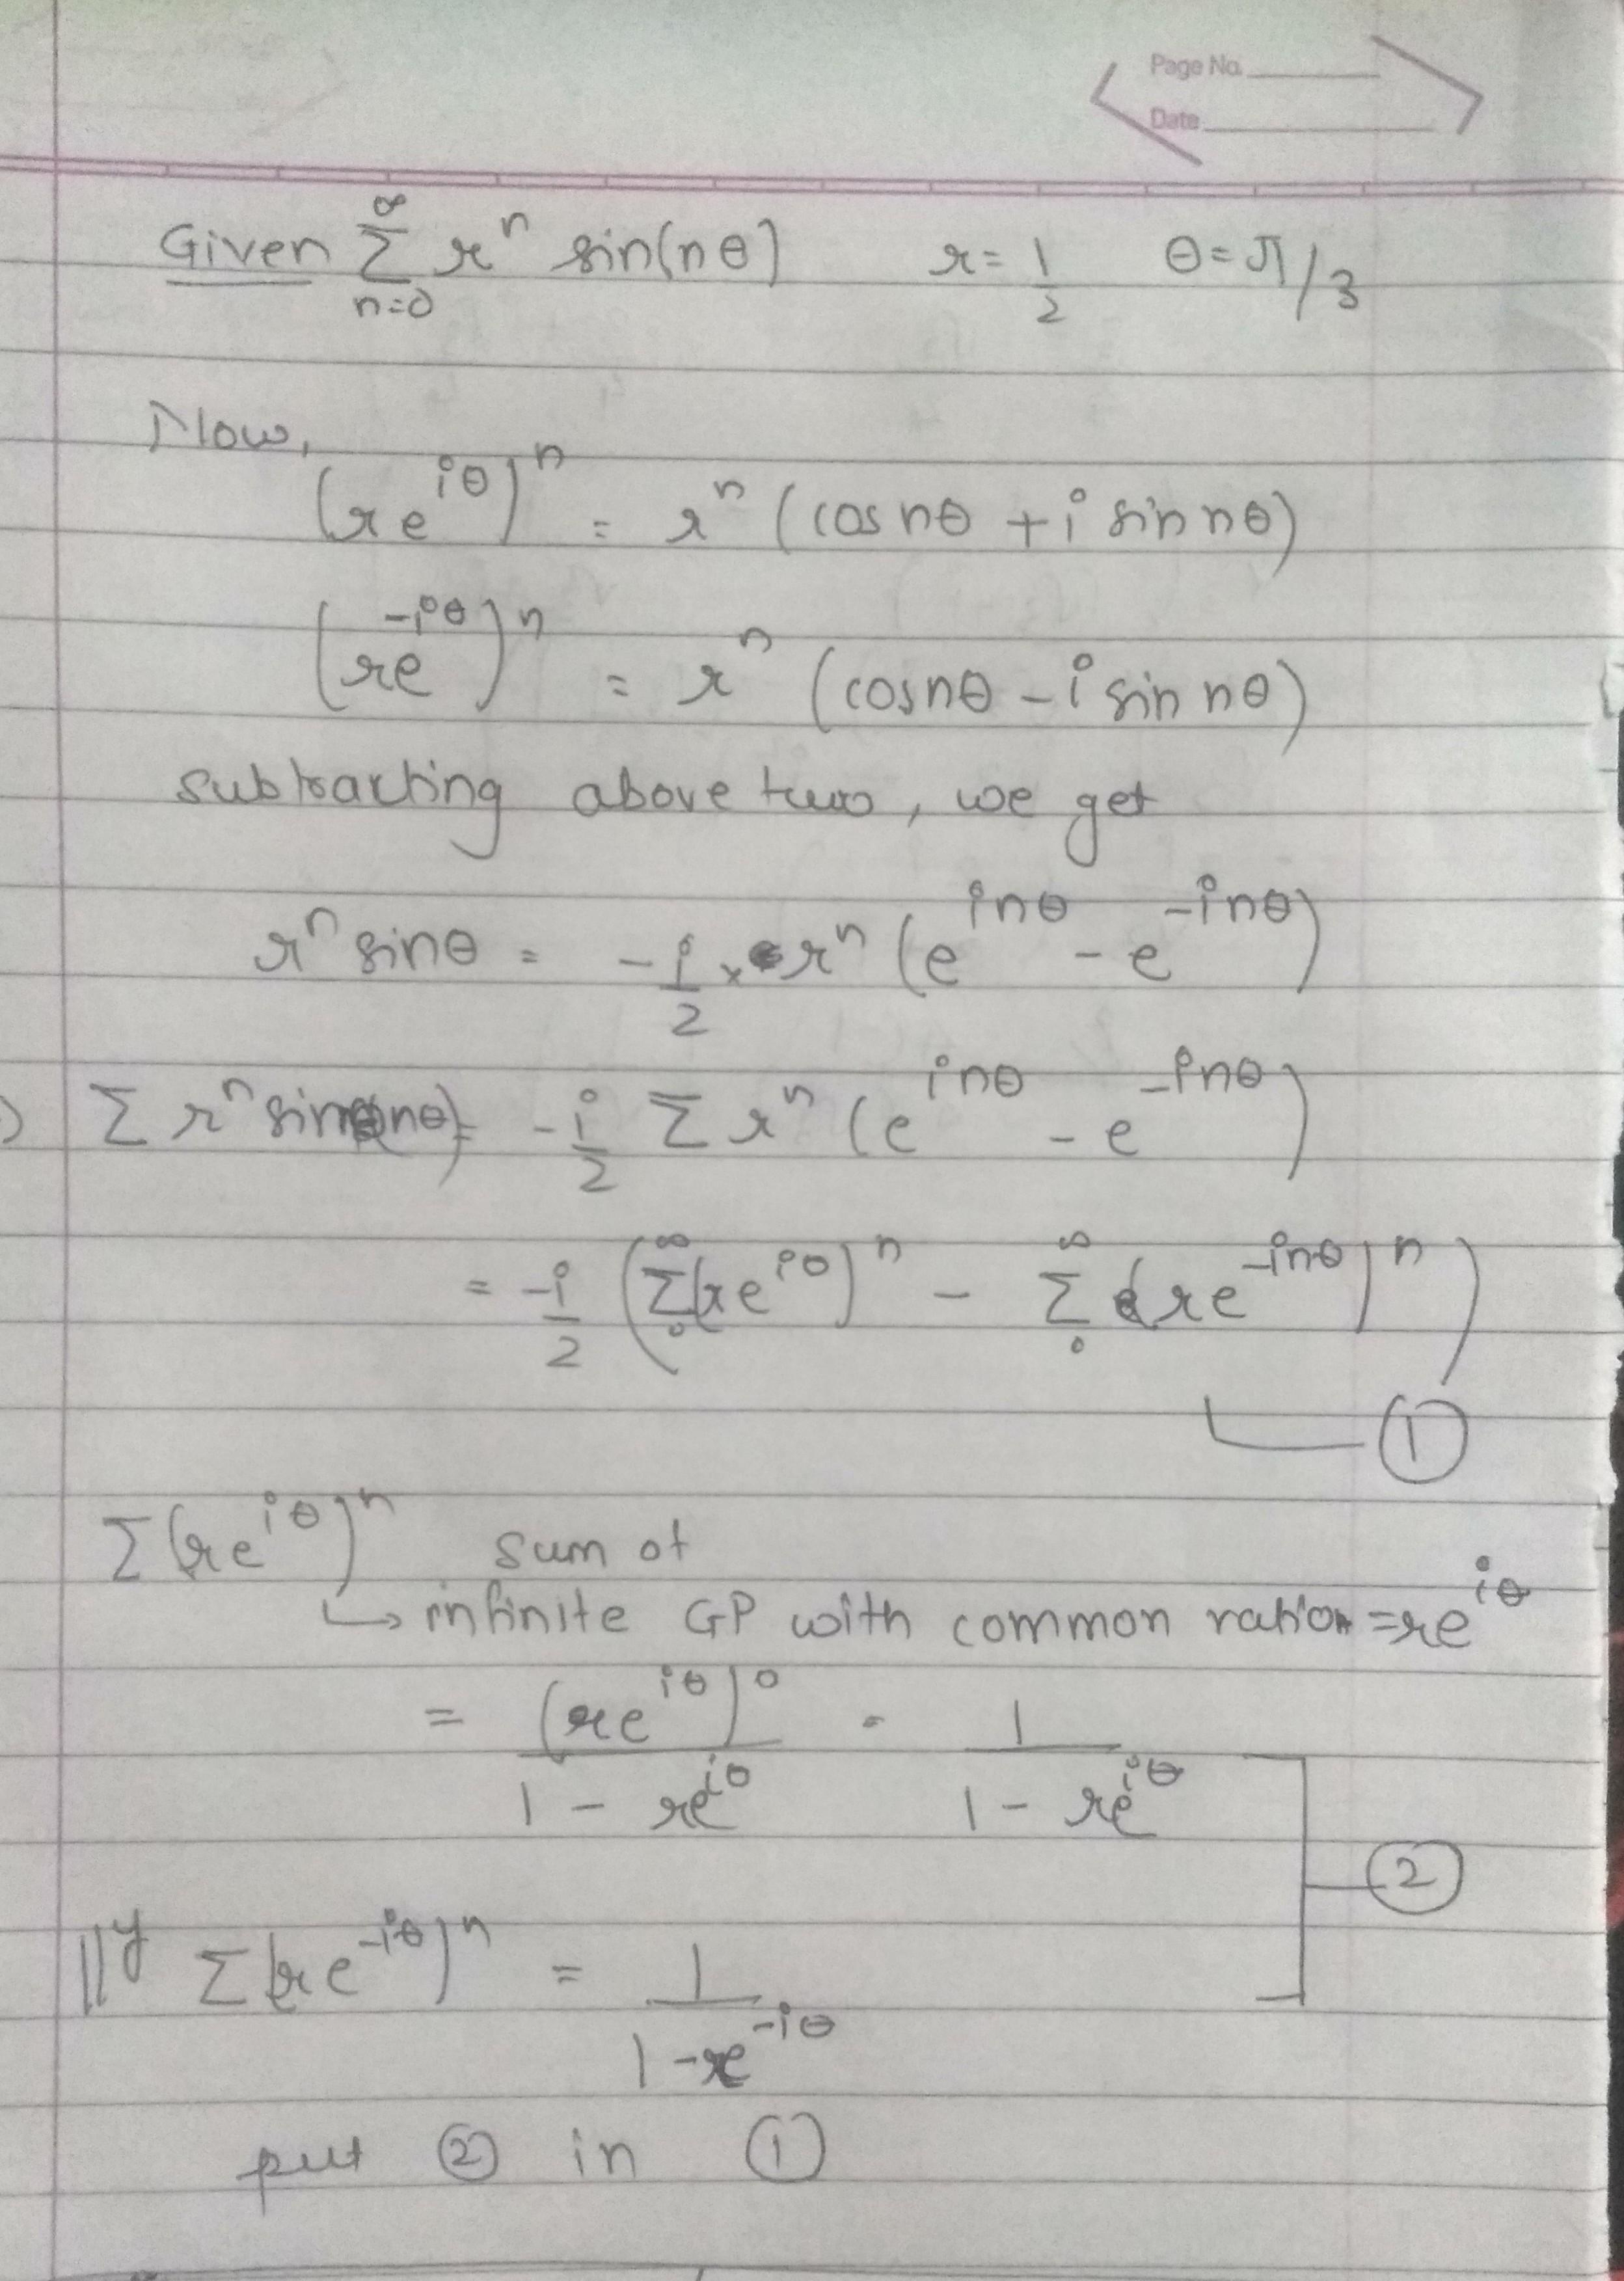 Page No.
Date
Given ∞∑n=0 r^n sin(nθ) r = 1/2 θ = π/3
Now,
(re^{iθ})^n = r^n (cos nθ + i sin nθ)
(re^{-iθ})^n = r^n (cos nθ - i sin nθ)
subtracting above two, we get
r^n sin θ = -i/2 × r^n (e^{inθ} - e^{-inθ})
∑ r^n sin(nθ) = -i/2 ∑ r^n (e^{inθ} - e^{-inθ})
= -i/2 (∑_0^∞ (re^{iθ})^n - ∑_0^∞ (re^{-inθ})^n)
①
∑(re^{iθ})^n sum of
↳ infinite GP with common ratio = re^{iθ}
= (re^{iθ})^0 / (1 - re^{iθ}) = 1 / (1 - re^{iθ})
②
||y ∑(re^{-iθ})^n = 1 / (1 - re^{-iθ})
put ② in ①